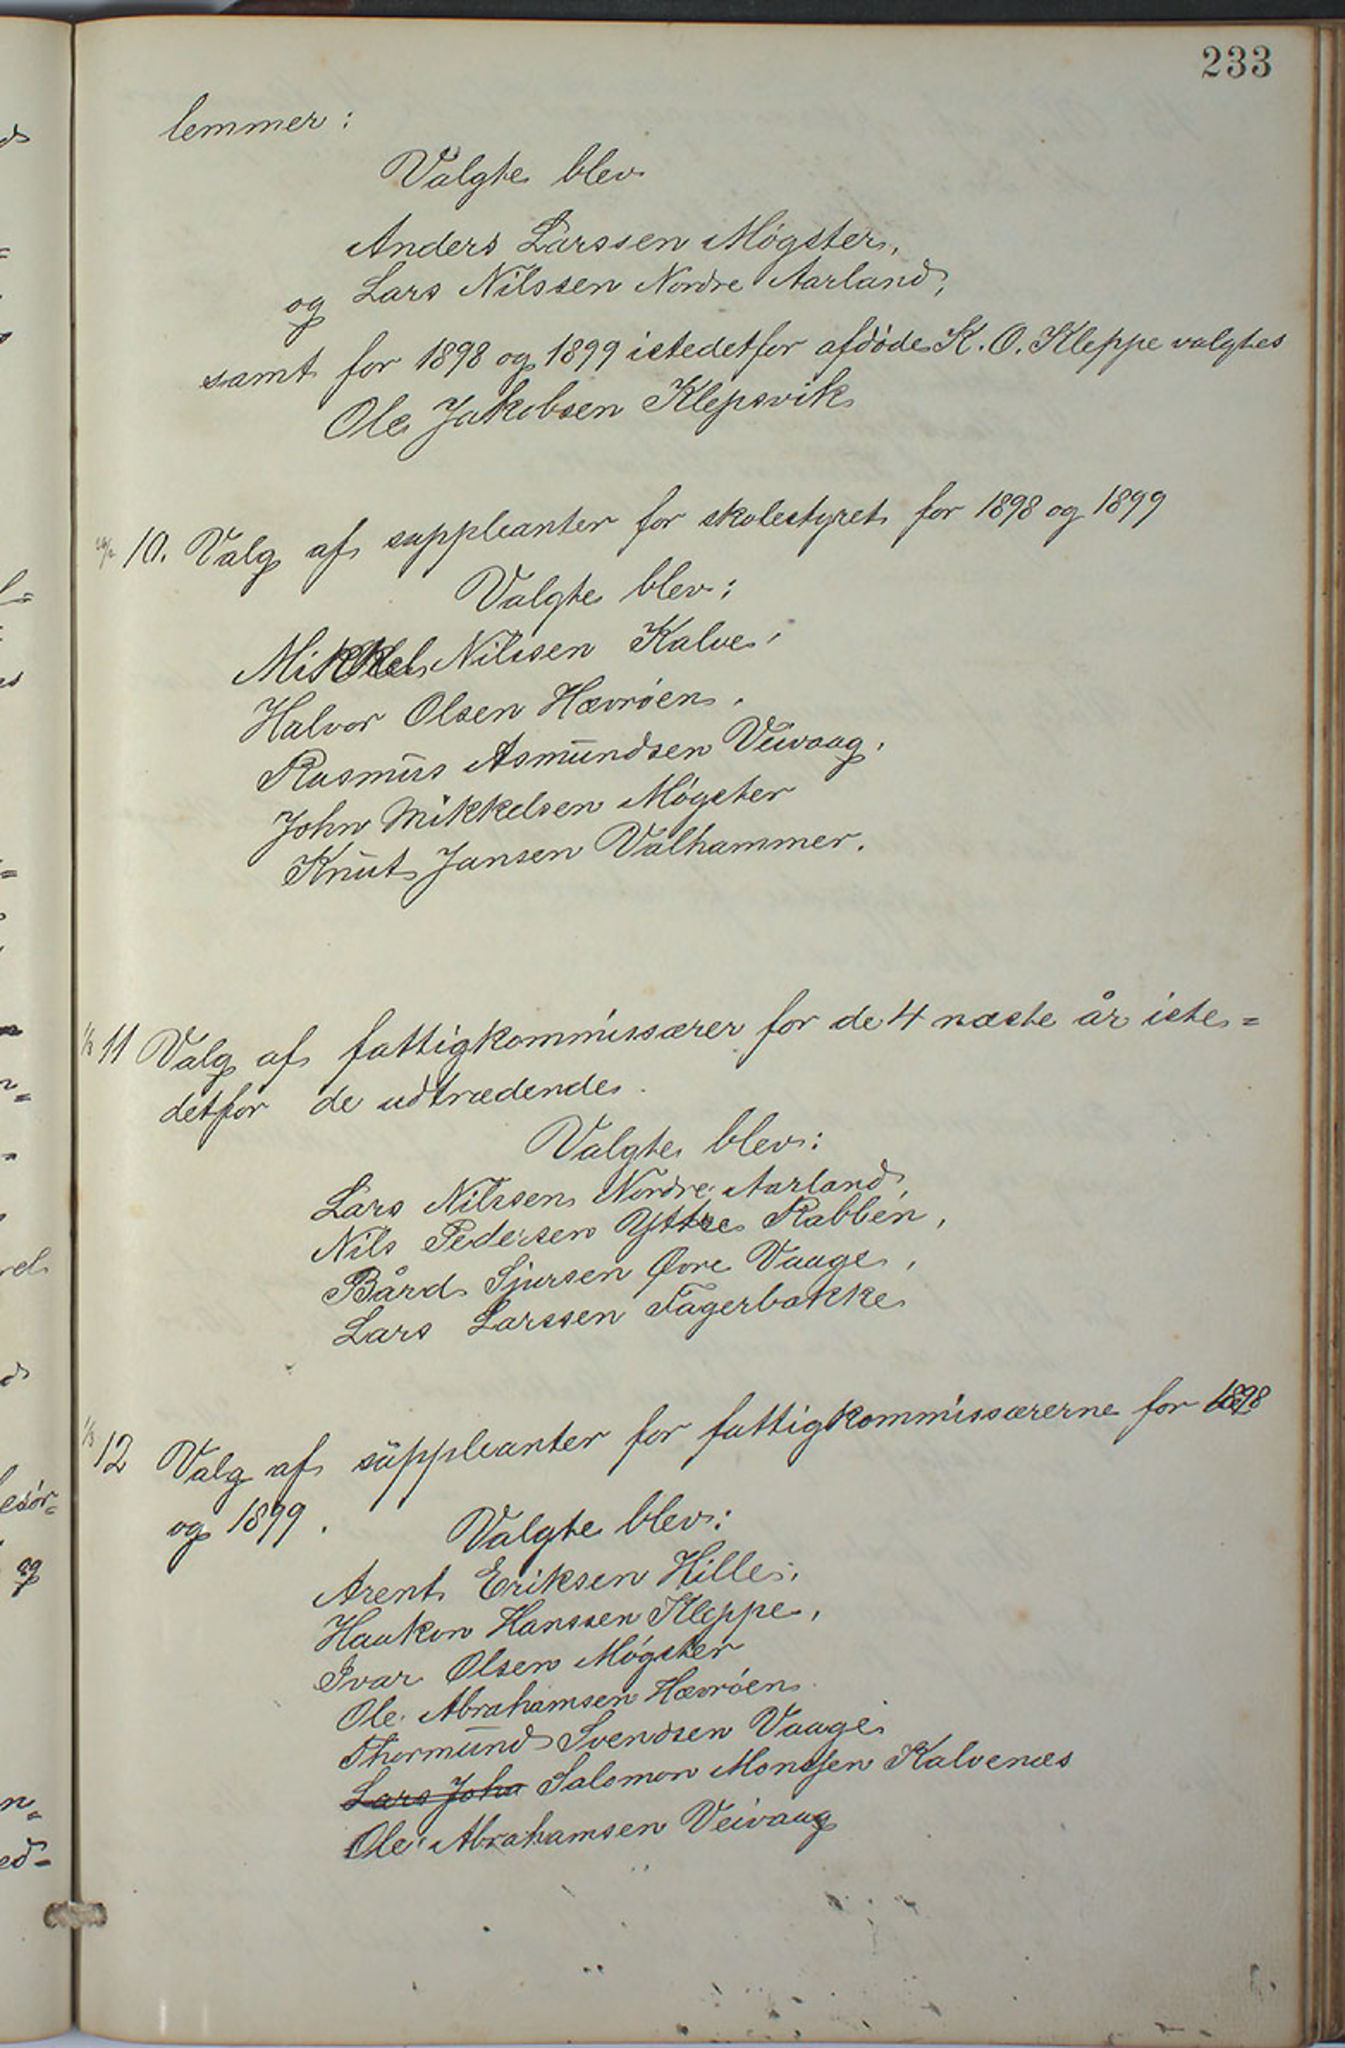 233
lemmer:
Valgte blev
Anders Larssen Møgster,
og Lars Nilssen Nordre Aarland,
samt for 1898 og 1899 istedetfor afdøde K. O. Kleppe valgtes
Ole Jakobsen Klepsvik
10. Valg af suppleanter for skolestyret for 1898 og 1899
Valgte blev:
Mikkel Nilssen Kalve,
Halvor Olsen Hævrøen,
Rasmus Asmundsen Veivaag,
John Mikkelsen Møgster
Knut Jansen Valhammer.
11 Valg af fattigkommissærer for de 4 næste år iste=
detfor de udtrædende.
Valgte blev:
Lars Nilssen Nordre Aarland,
Nils Pedersen Yttre Rabben,
Bård Sjursen Øvre Vaage,
Lars Larssen Fagerbakke
12 Valg af suppleanter for fattigkommissærerne for 1898
og 1899.
Valgte blev:
Arent Eriksen Hille,
Haakon Hanssen Kleppe,
Ivar Olsen Møgster
Ole Abrahamsen Hævrøen
Thormund Svendsen Vaage
Lars John Salomon Monsen Kalvenæs
Ole Abrahamsen Veivaag